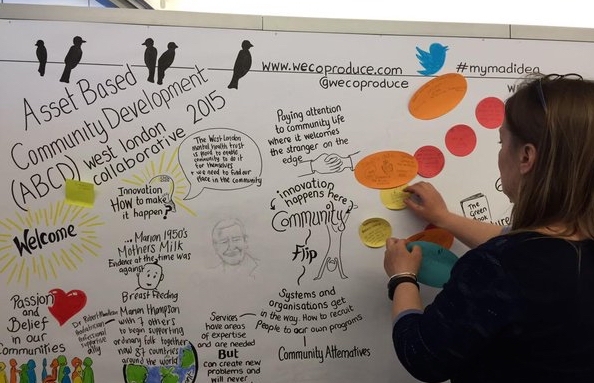 www.wecoproduce.com
@wecoproduce
#mymadidea
Asset Based
Community Development
(ABCD) west london
collaborative 2015
Welcome
Innovation
HOW to make
it happen?
The West London
mental health trust
is hard to
community to do it
for themselves
+ we need to find our
place in the community
Paying attention
to community life
where it welcomes
the stranger on the
edge
innovation
happens here
Community
Flip
Systems and
organisations get
in the way. How to recruit
people to our own programs
Community Alternatives
... Marion 1950's
Mothers Milk
Evidence at the time was
against
Breast Feeding
Marion Thompson
with 7 others
to begin supporting
ordinary folk together
now 87 countries
around the world
Passion
and
Belief
in our
Communities
Dr Robert
ally
Services
have areas
of expertise
and are needed
But
can create new
problems and
will never
The
Green
Book